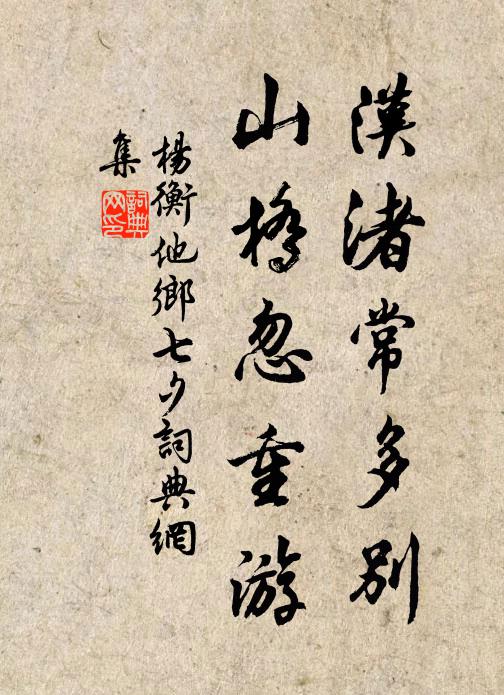 漢渚常多別
山橋忽重游
楊衡他鄉七夕詞典網
集
詞典
网印